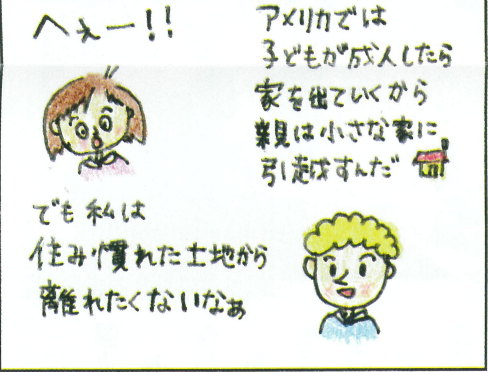 アメリカでは
子どもが成人したら
家を出ていくから
親は小さな家に
引越すんだ
へぇー!!
でも私は
住み慣れた土地から
離れたくないなぁ